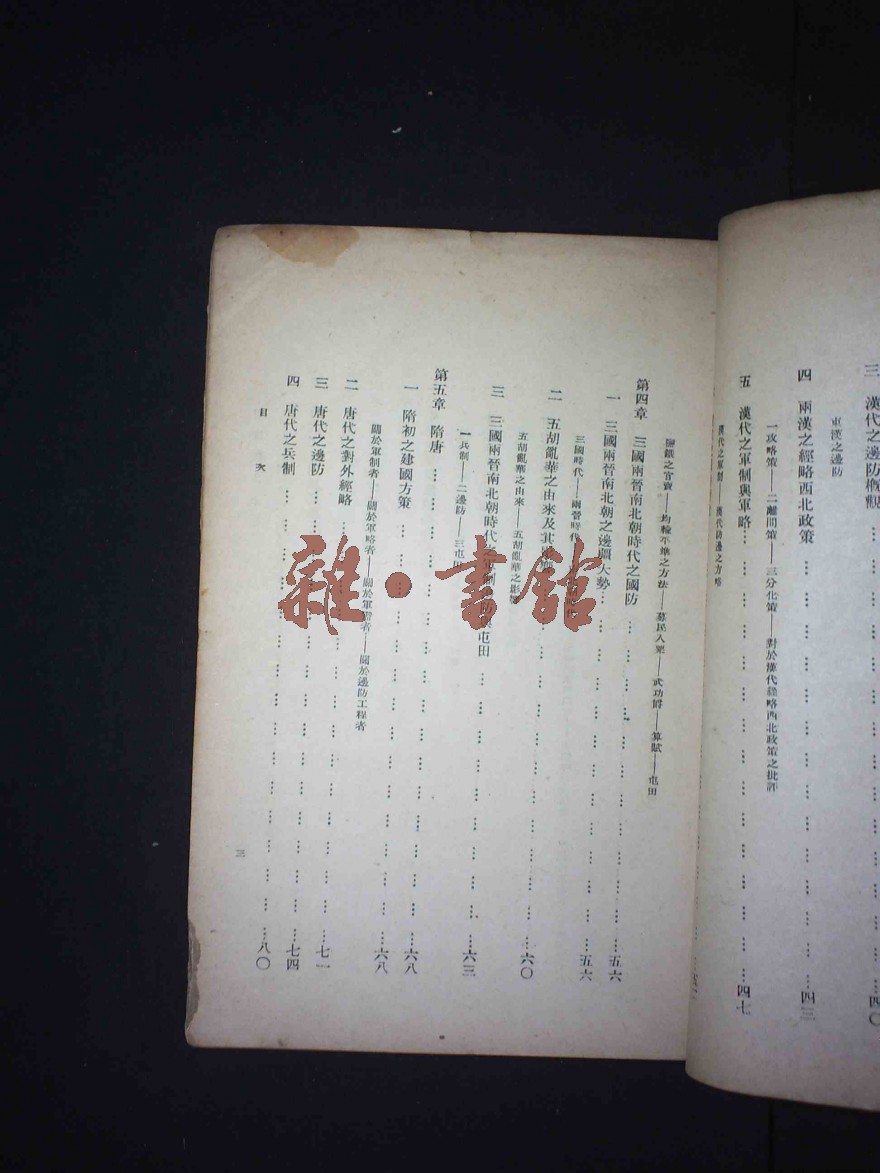 三 漢代之邊防概觀 四〇
東漢之邊防
四 兩漢之經略西北政策 四三
一攻略策——二離間策——三分化策——對於漢代經略西北政策之批評
五 漢代之軍制與軍略 四七
漢代之軍制——漢代防邊之方略
鹽鐵之官賣——均輸平準之方法——募民入粟——武功爵——算賦——屯田
第四章 三國兩晉南北朝時代之國防 五六
一 三國兩晉南北朝之邊疆大勢 五六
三國時代——兩晉時代
二 五胡亂華之由來及其 六〇
五胡亂華之由來——五胡亂華之影響
三 三國兩晉南北朝時代 軍制 防 屯田 六三
一兵制——二邊防——三屯田
第五章 隋唐 六八
一 隋初之建國方策 六八
關於軍制者——關於軍略者——關於軍 者——關於邊防工程者
二 唐代之對外經略 七一
三 唐代之邊防 七四
四 唐代之兵制 八〇
目次
三
雜·書館